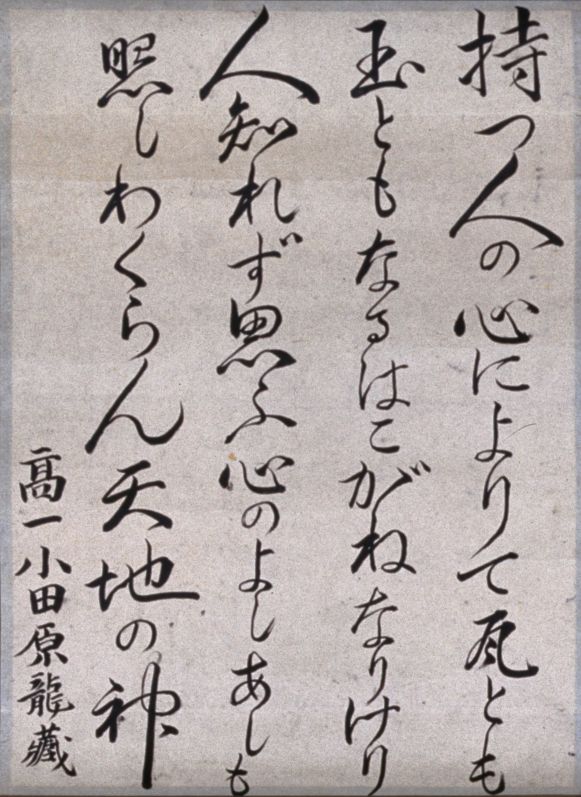 持つ人の心によりて瓦とも
玉ともなるはこがねなりけり
人知れず思ふ心のよしあしも
照しわくらん天地の神
高一小田原龍蔵